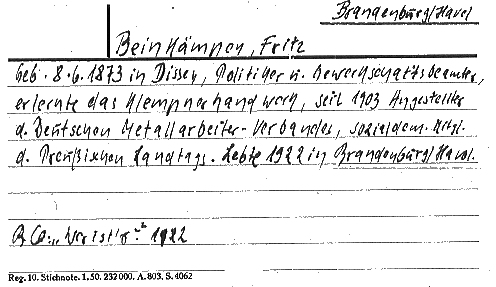 Brandenburg/Havel
Beinkämpen, Fritz
Geb. 8.6.1873 in Dissen, Politiker u. Gewerkschaftsbeamter,
erlernte das Klempnerhandwerk, seit 1903 Angestellter
d. Deutschen Metallarbeiter-Verbandes, sozialdem. Mitgl.
d. Preußischen Landtags. Lebte 1922 in Brandenburg/Havel.
"Wer ist's" 1922
Reg. 10. Stichnote. 1,50. 232000. A. 803. S. 4062